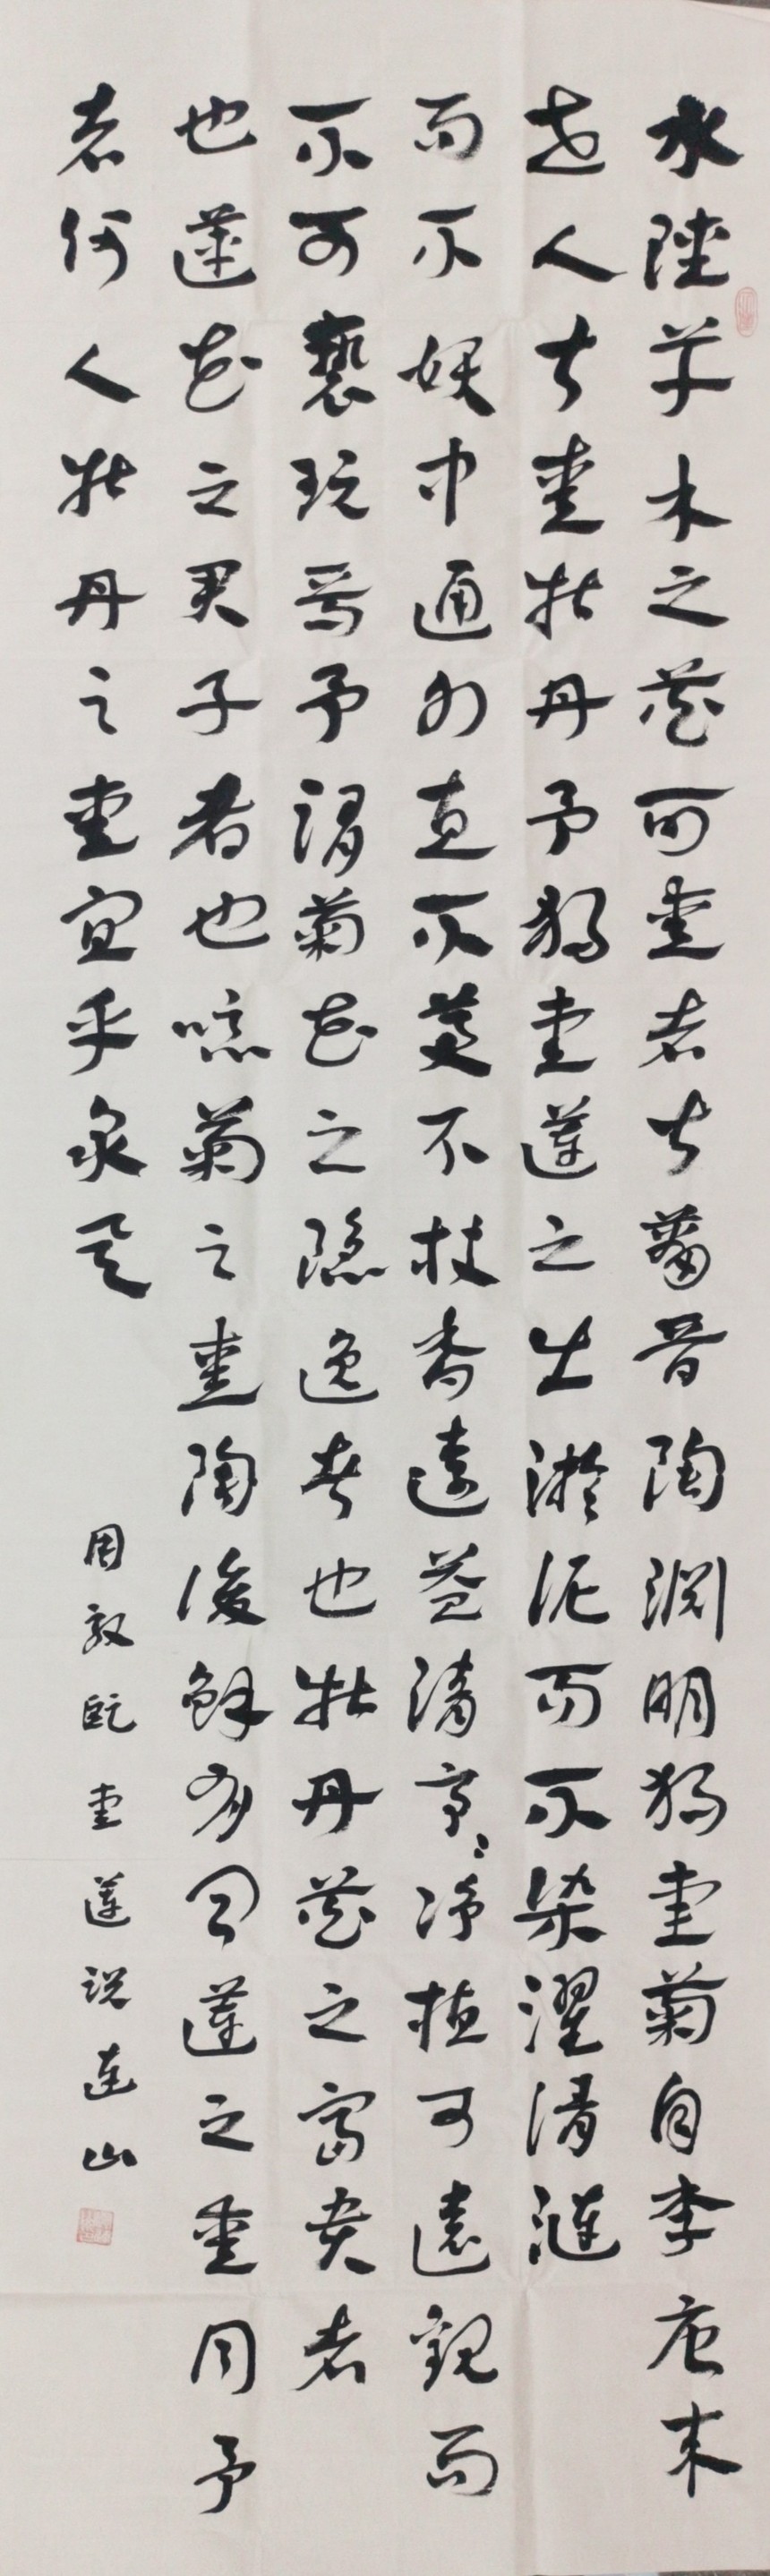 水陸草木之花可愛者甚蕃昔陶渊明獨愛菊自李唐来
世人甚愛牡丹予獨愛蓮之出淤泥而不染濯清漣
而不妖中通外直不蔓不枝香遠益清亭〻淨植可遠觀而
不可褻玩焉予謂菊花之隱逸者也牡丹花之富贵者
也蓮花之君子者也噫菊之愛陶後鮮有聞蓮之愛同予
者何人牡丹之愛宜乎衆矣
周敦頤愛蓮說連山